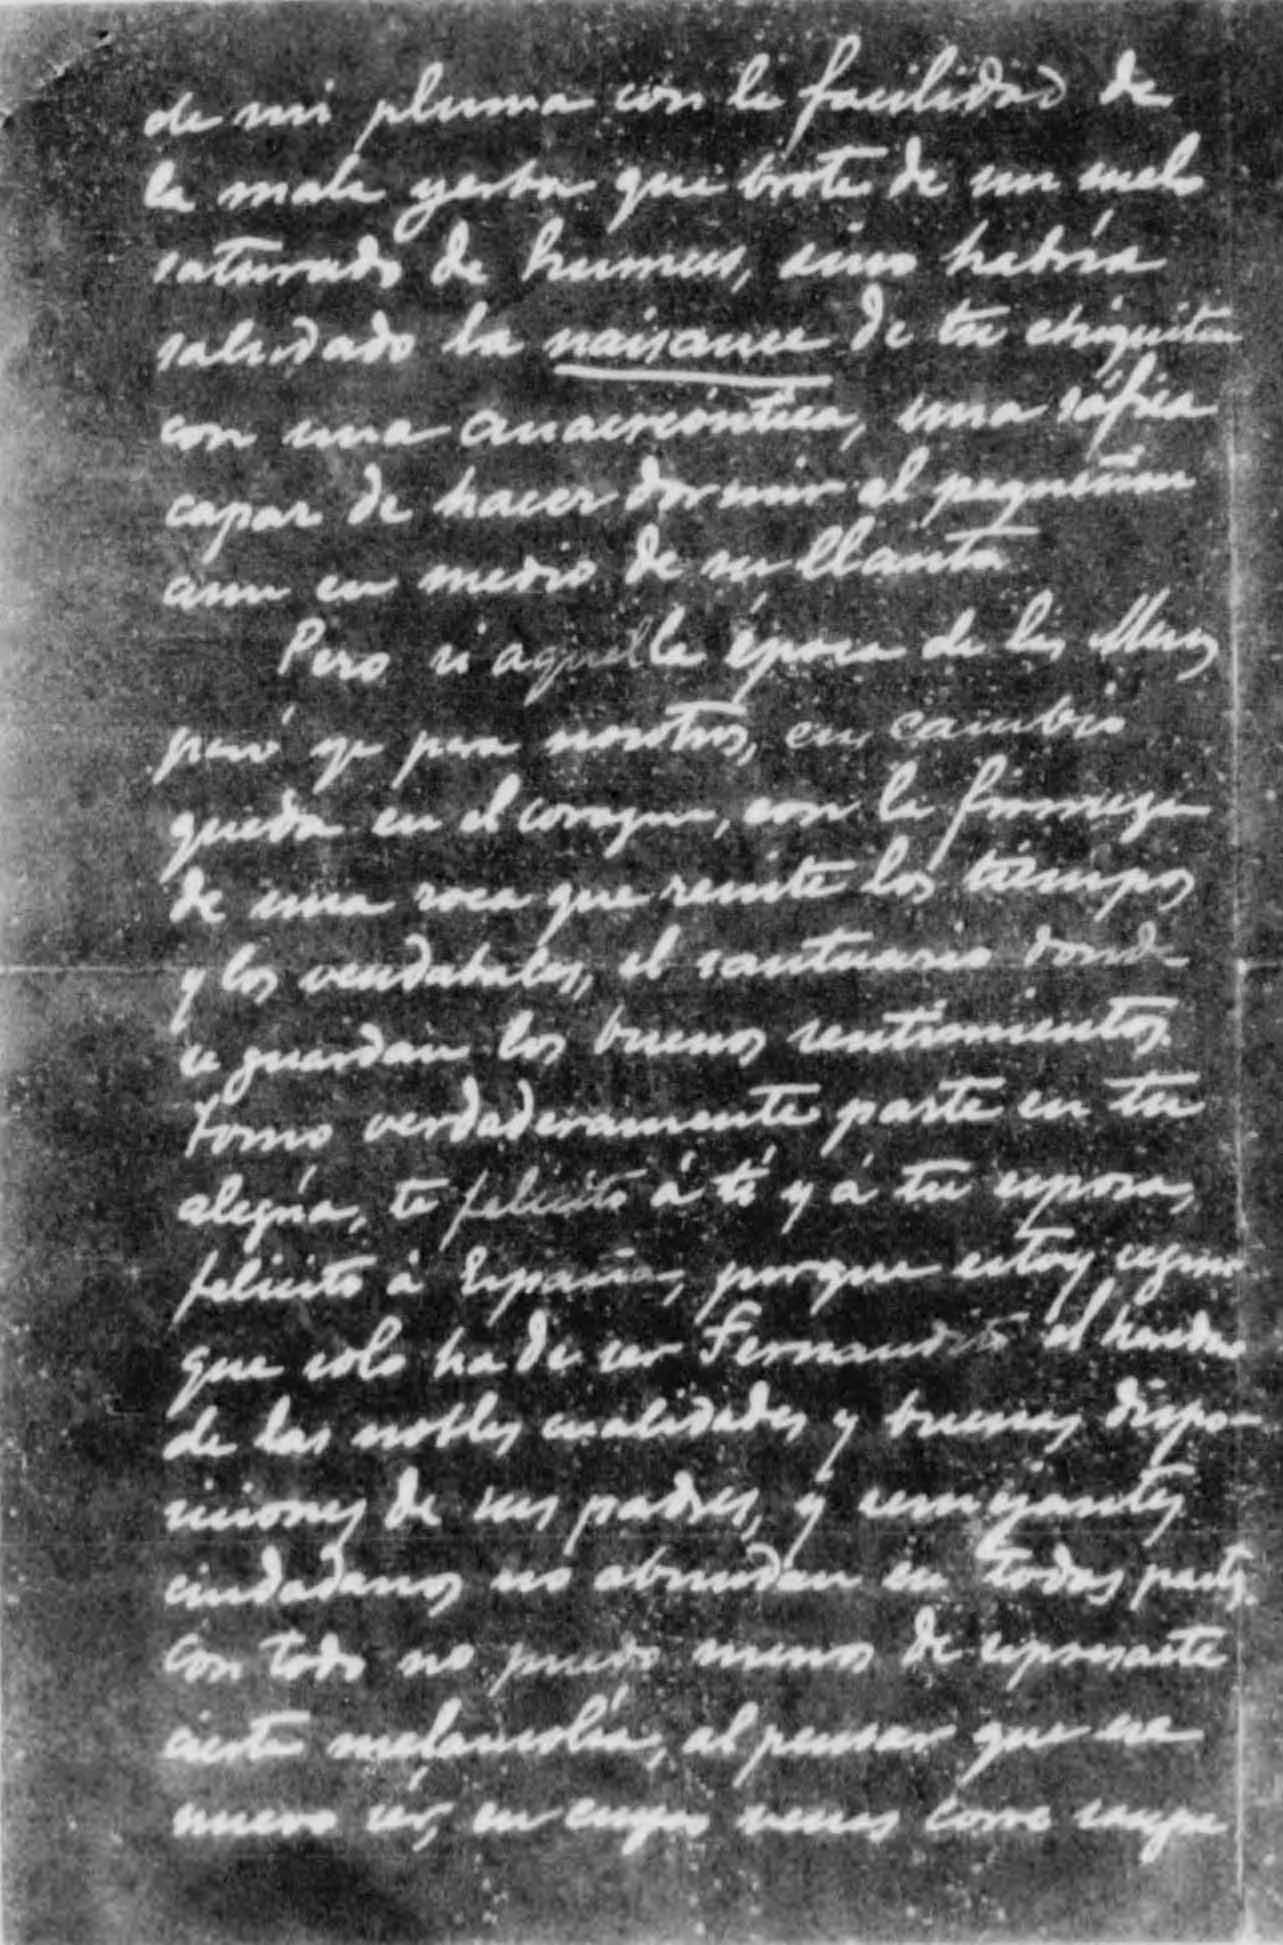 de mi pluma con la facilidad de
la mala yerba que brota de un suelo
saturado de humus, sino habría
saludado la naisance de tu chiquitin
con una anacreóntica, una sáfica
capaz de hacer dormir al pequeñin
aun en medio de su llanto
Pero si aquella época de las Musas
pasó ya para nosotros, en cambio
queda en el corazon, con la firmeza
de una roca que resiste los tiempos
y los vendabales, el santuario donde
se guardan los buenos sentimientos.
Tomo verdaderamente parte en tu
alegría, te felicito á tí y á tu esposa,
felicito á España, porque estoy seguro
que solo ha de ser Fernandito el heredero
de las nobles cualidades y buenas dispo-
siciones de sus padres, y semejantes
ciudadanos no abundan en todas partes.
Con todo no puedo menos de espresarte
cierta melancolía, al pensar que ese
nuevo ser, en cuyas venas corre sangre